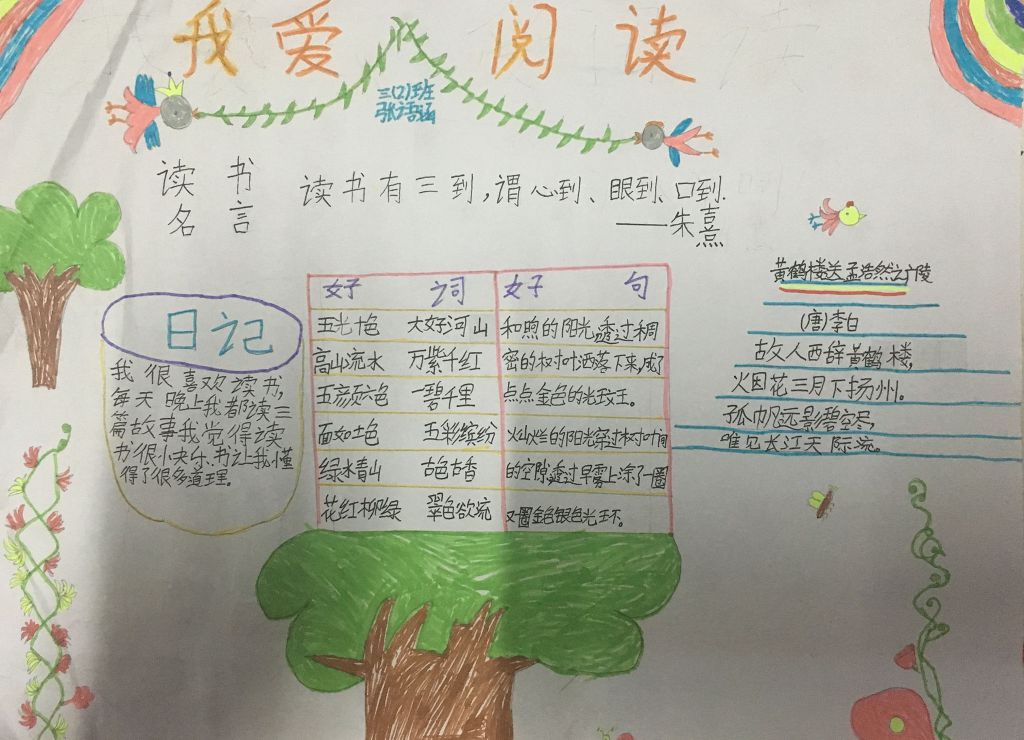 我爱阅读
三(2)班
张语涵
读书
名言
读书有三到,谓心到、眼到、口到.
——朱熹
日记
我很喜欢读书,
每天晚上我都读三
篇故事我觉得读
书很快乐.书让我懂
得了很多道理。
好词
五光十色 大好河山
高山流水 万紫千红
五颜六色 一碧千里
面如土色 五彩缤纷
绿水青山 古色古香
花红柳绿 翠色欲流
好句
和煦的阳光透过稠
密的树叶洒落下来,成了
点点金色的光斑。
火灿烂的阳光穿过树叶间
的空隙,透过早雾上涂了一圈
又圈金色银色光环。
黄鹤楼送孟浩然之广陵
(唐)李白
故人西辞黄鹤楼,
烟花三月下扬州。
孤帆远影碧空尽,
唯见长江天际流。